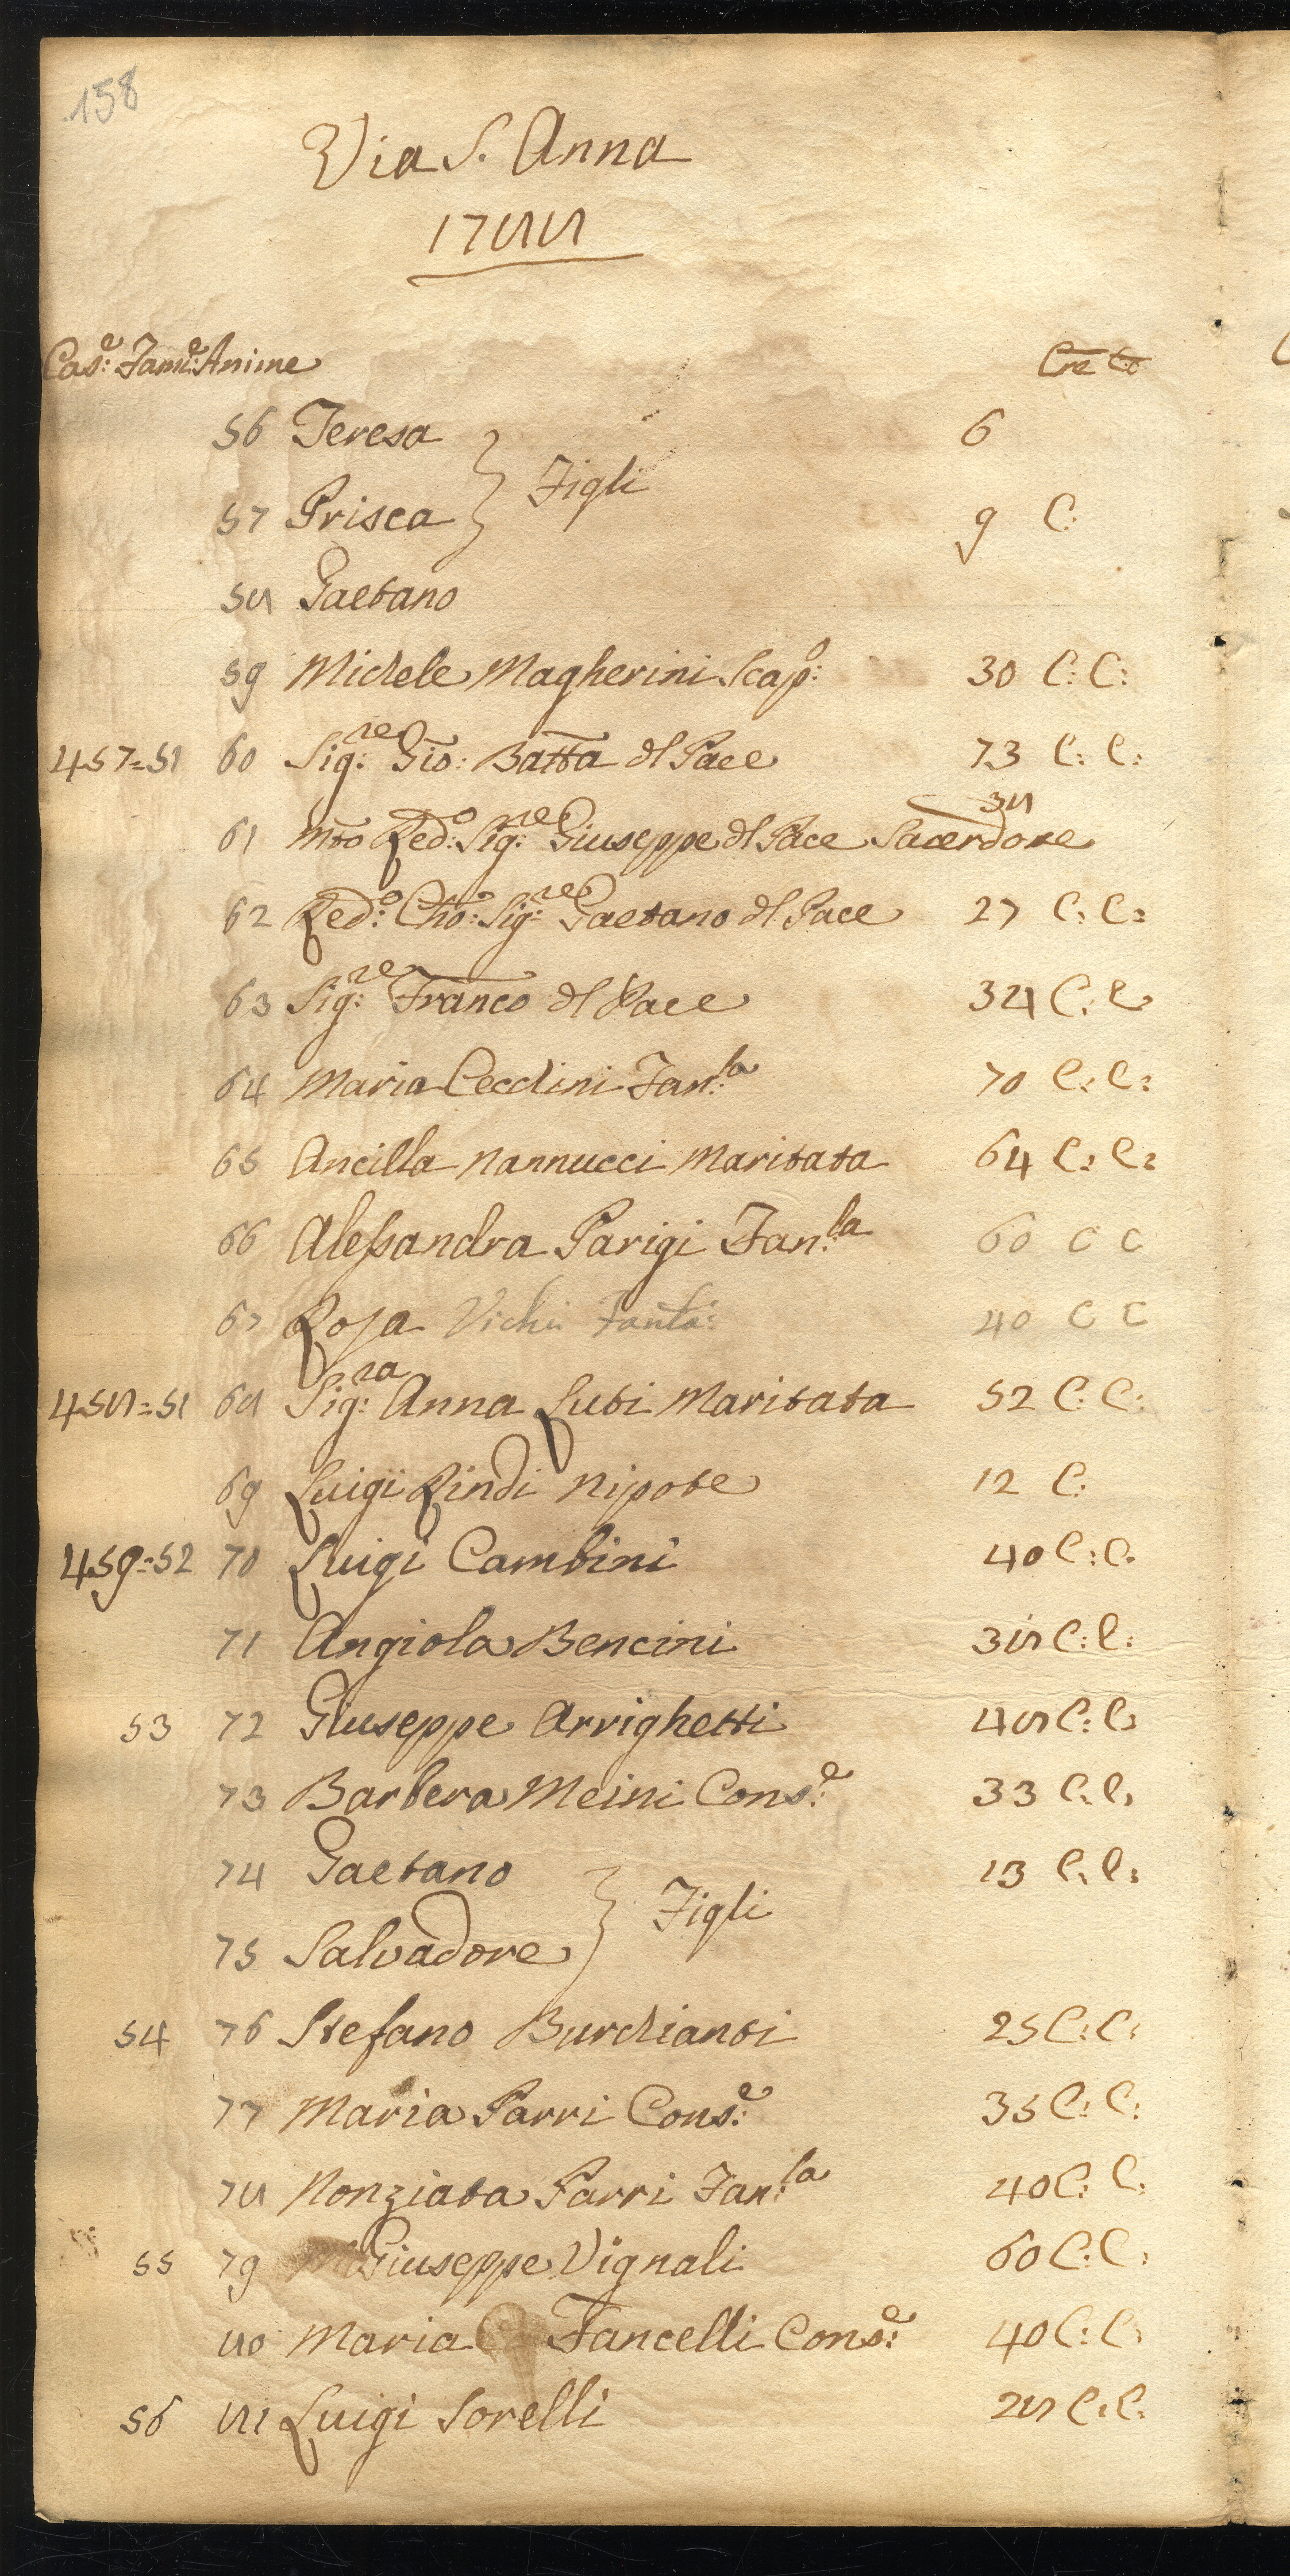 158
Via S. Anna
1788
Cas:e Fam:e Anime Cre Co
56 Teresa 6
} Figli
57 Prisca 9 C:
58 Gaetano
59 Michele Magherini Scap:o 30 C: C:
457=51 60 Sig:re Gio: Batta dl Pace 73 C: C:
61 Mto Red:o Sig:re Giuseppe dl Pace Sacerdote 38
62 Red:o Cho: Sig:re Gaetano dl Pace 27 C: C:
63 Sig:re Franco dl Pace 34 C: C
64 Maria Cecchini Fan:la 70 C: C:
65 Ancilla Nannucci Maritata 64 C: C:
66 Alessandra Parigi Fan:la 60 C C
67 Rosa Vichi Fanta: 40 C C
458=51 68 Sig:ra Anna Luti Maritata 52 C: C:
69 Luigi Rindi Nipote 12 C:
459=52 70 Luigi Cambini 40 C: C.
71 Angiola Bencini 38 C: C:
53 72 Giuseppe Arrighetti 48 C: C:
73 Barbera Meini Cons:e 33 C: C:
74 Gaetano 13 C: C:
} Figli
75 Salvadore
54 76 Stefano Burchianti 25 C: C:
77 Maria Parri Cons:e 35 C: C:
78 Nonziata Parri Fan:la 40 C: C:
55 79 Giuseppe Vignali 60 C: C:
80 Maria Fancelli Cons:e 40 C: C:
56 81 Luigi Sorelli 28 C: C: